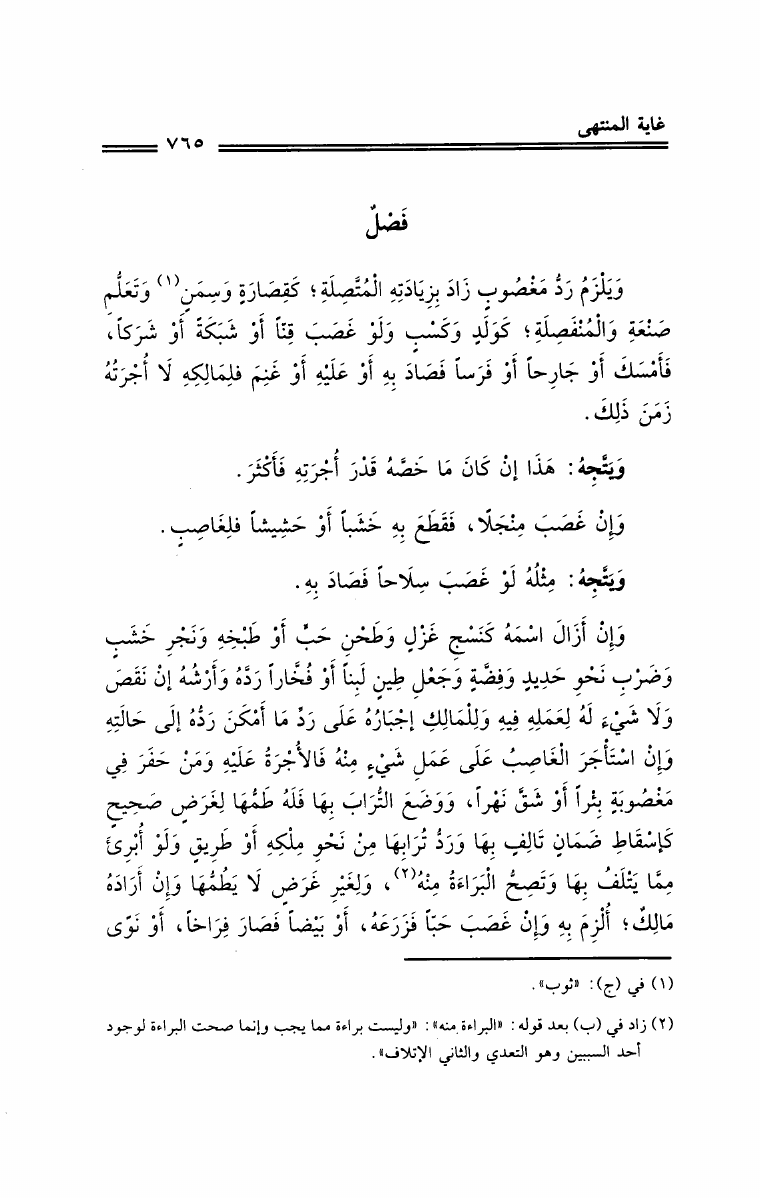 غاية المنتهى
٧٦٥
فَصْلٌ
وَيَلْزَمُ رَدُّ مَغْصُوبٍ زَادَ بِزِيَادَتِهِ الْمُتَّصِلَةِ؛ كَقِصَارَةٍ وَسِمَنٍ(١) وَتَعَلُّمِ
صَنْعَةٍ وَالْمُنْفَصِلَةِ؛ كَوَلَدٍ وَكَسْبٍ وَلَوْ غَصَبَ قِنّاً أَوْ شَبَكَةً أَوْ شَرَكاً،
فَأَمْسَكَ أَوْ جَارِحاً أَوْ فَرَساً فَصَادَ بِهِ أَوْ عَلَيْهِ أَوْ غَنِمَ فلِمَالِكِهِ لَا أُجْرَتُهُ
زَمَنَ ذَلِكَ.
وَيَتَّجِهُ: هَذَا إنْ كَانَ مَا خَصَّهُ قَدْرَ أُجْرَتِهِ فَأَكْثَرَ.
وَإِنْ غَصَبَ مِنْجَلًا، فَقَطَعَ بِهِ خَشَباً أَوْ حَشِيشاً فلِغَاصِبٍ.
وَيَتَّجِهُ: مِثْلُهُ لَوْ غَصَبَ سِلَاحاً فَصَادَ بِهِ.
وَإِنْ أَزَالَ اسْمَهُ كَنَسْجِ غَزْلٍ وَطَحْنِ حَبٍّ أَوْ طَبْخِهِ وَنَجْرِ خَشَبٍ
وَضَرْبِ نَحْوِ حَدِيدٍ وَفِضَّةٍ وَجَعْلِ طِينٍ لَبِناً أَوْ فُخَّاراً رَدَّهُ وَأَرْشُهُ إنْ نَقَصَ
وَلَا شَيْءَ لَهُ لِعَمَلِهِ فِيهِ وَلِلْمَالِكِ إجْبَارُهُ عَلَى رَدِّ مَا أَمْكَنَ رَدُّهُ إلَى حَالَتِهِ
وَإِنْ اسْتَأْجَرَ الْغَاصِبُ عَلَى عَمَلِ شَيْءٍ مِنْهُ فَالأُجْرَةُ عَلَيْهِ وَمَنْ حَفَرَ فِي
مَغْصُوبَةٍ بِئْراً أَوْ شَقَّ نَهْراً، وَوَضَعَ التُّرَابَ بِهَا فَلَهُ طَمُّهَا لِغَرَضٍ صَحِيحٍ
كَإِسْقَاطِ ضَمَانِ تَالِفٍ بِهَا وَرَدُّ تُرَابِهَا مِنْ نَحْوِ مِلْكِهِ أَوْ طَرِيقٍ وَلَوْ أُبْرِئَ
مِمَّا يَتْلَفُ بِهَا وَتَصِحُّ الْبَرَاءَةُ مِنْهُ(٢)، وَلِغَيْرِ غَرَضٍ لَا يَطُمُّهَا وَإِنْ أَرَادَهُ
مَالِكٌ؛ أُلْزِمَ بِهِ وَإِنْ غَصَبَ حَبّاً فَزَرَعَهُ، أَوْ بَيْضاً فَصَارَ فِرَاخاً، أَوْ نَوًى
(١) في (ج): «ثوب».
(٢) زاد في (ب) بعد قوله: «البراءة منه»: «وليست براءة مما يجب وإنما صحت البراءة لوجود
أحد السببين وهو التعدي والثاني الإتلاف».